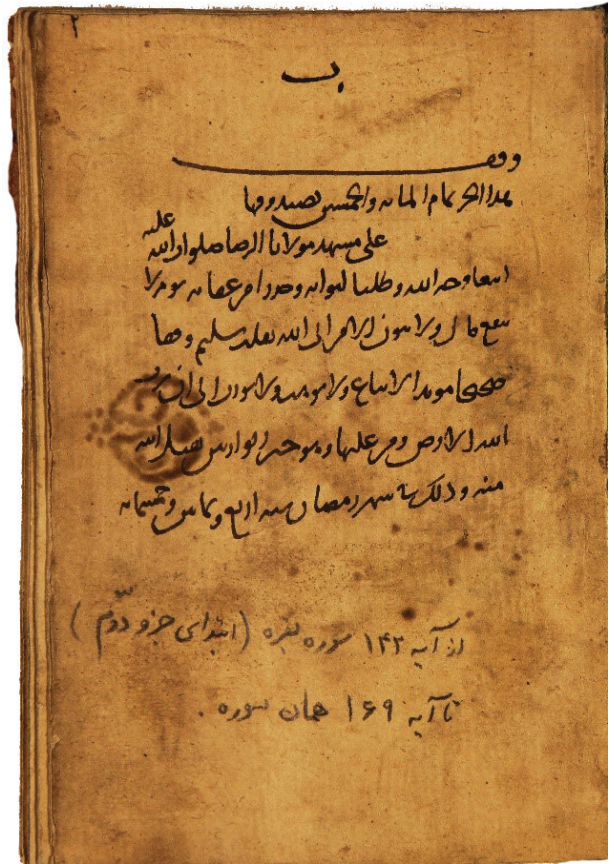 ٢
ب
وقف
هذا الجزء تمام المائة والخمسين بصندوقها
على مشهد مولانا الرضا صلوات الله عليه
ابتغاء وجه الله وطلبا لثوابه وحذرا من عقابه يوم لا
ينفع مال ولا بنون الا من اتى الله بقلب سليم وقفا
صحيحا مؤبدا لا يباع ولا يوهب ولا يورث الى ان يرث
الله الارض ومن عليها وهو خير الوارثين تقبل الله
منه وذلك في شهر رمضان سنه اربع وثمانين وخمسمائه
از آیه ۱۴۲ سوره بقره (ابتدای جزو دوّم)
تا آیه ۱۶۹ همان سوره .